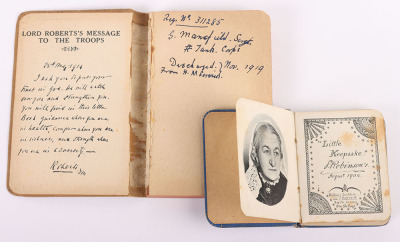 LORD ROBERTS'S MESSAGE
TO THE TROOPS
25th Aug, 1914
I ask you to put your
trust in God. He will watch
over you and strengthen you.
You will find in this little
Book guidance when you are
in health, comfort when you are
in sickness, and strength when
you are in adversity.
Roberts
F.M.
Reg. No 311285
G. Mansfield.
Tank Corps
Discharged Nov. 1919
From H.M.
Little
Keepsake
August 1902